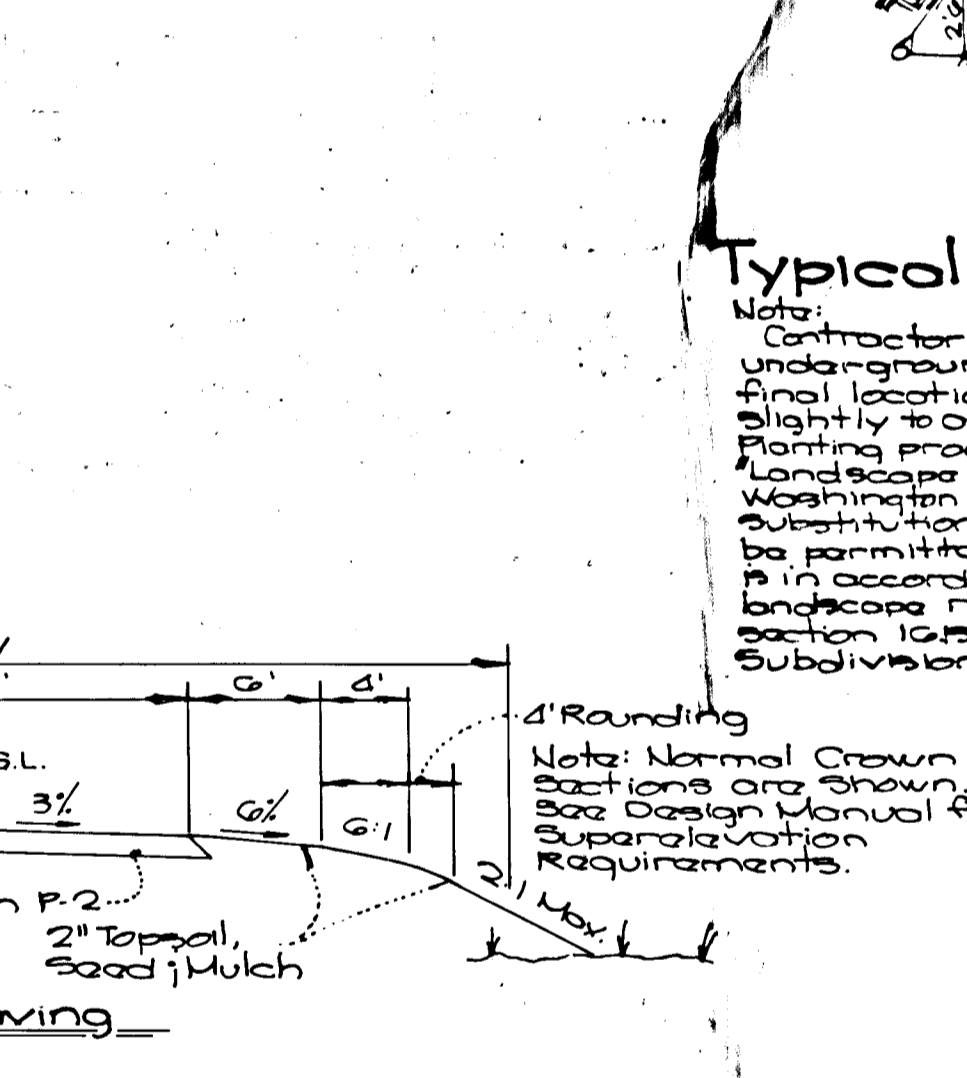 2'
Typical
Note:
Contractor
underground
final locatio
slightly to a
Planting proc
"Landscape
Washington
substitution
be permitte
is in accord
landscape r
section 16.
Subdivision
6'
4'
4' Rounding
S.L.
Note: Normal Crown
Sections are Shown.
See Design Manual f
Superelevation
Requirements.
3%
6%
6:1
2:1 Max.
P-2
2" Topsoil,
Seed & Mulch
ving